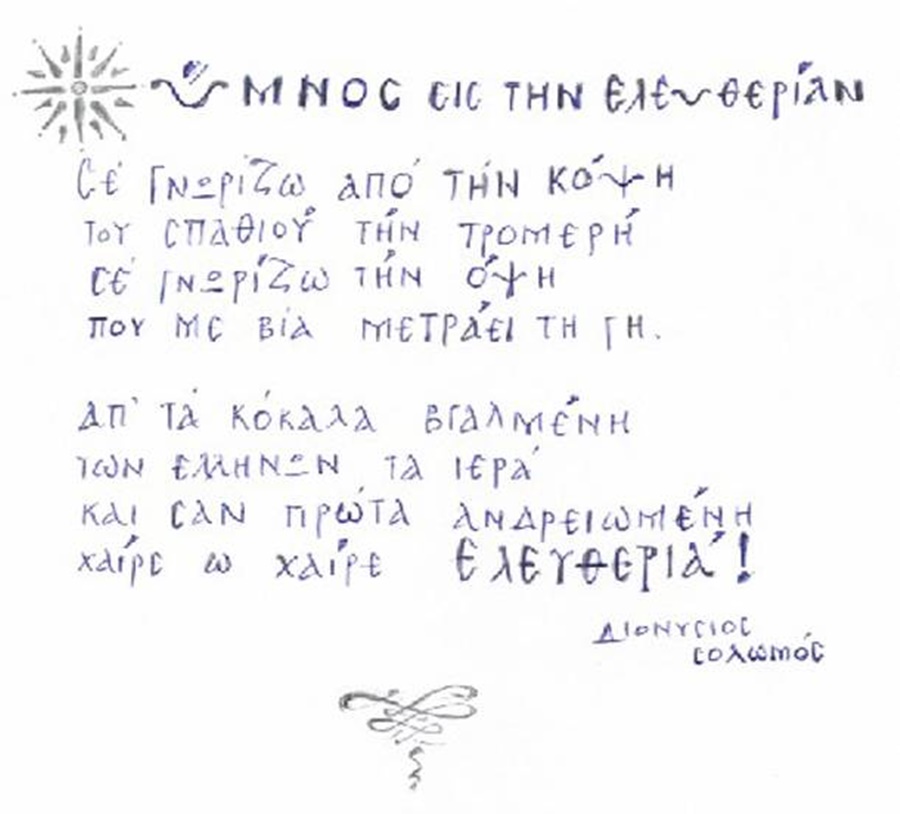 Ὕμνος εις την Ελευθερίαν
Σέ γνωρίζω από τήν κόψη
του σπαθιού τήν τρομερή
σέ γνωρίζω τήν όψη
που με βία μετράει τη γη.
Απ' τά κόκαλα βγαλμένη
των Ελλήνων τα ιερά
και σαν πρώτα ανδρειωμένη
χαίρε ω χαίρε Ελευθεριά!
Διονυσιος
Σολωμός